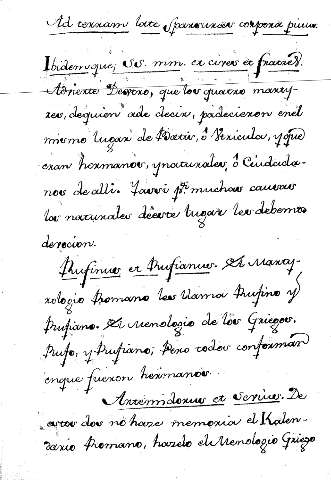 Ad terram late sparsurus corpora
Ibidemque, SS. mm. et cives et fratres.
Advierte Dextro, que los quatro marty-
res, de quien ade decir, padecieron en el
mismo lugar de ó Versicula, y que
eran hermanos, y naturales, ó Ciudada-
nos de alli. Y assi pr. muchas causas
los naturales de este lugar les debemos
devocion.
Rufinus et Rufianus. El Marty-
rologio Romano les llama Rufino y
Rufiano. El Menologio de los Griegos,
Rufo, y Rufiano; Pero todos conforman
en que fueron hermanos.
Artemidorus et Servius. De
estos dos no haze memoria el Kalen-
dario Romano, hazelo el Menologio Griego